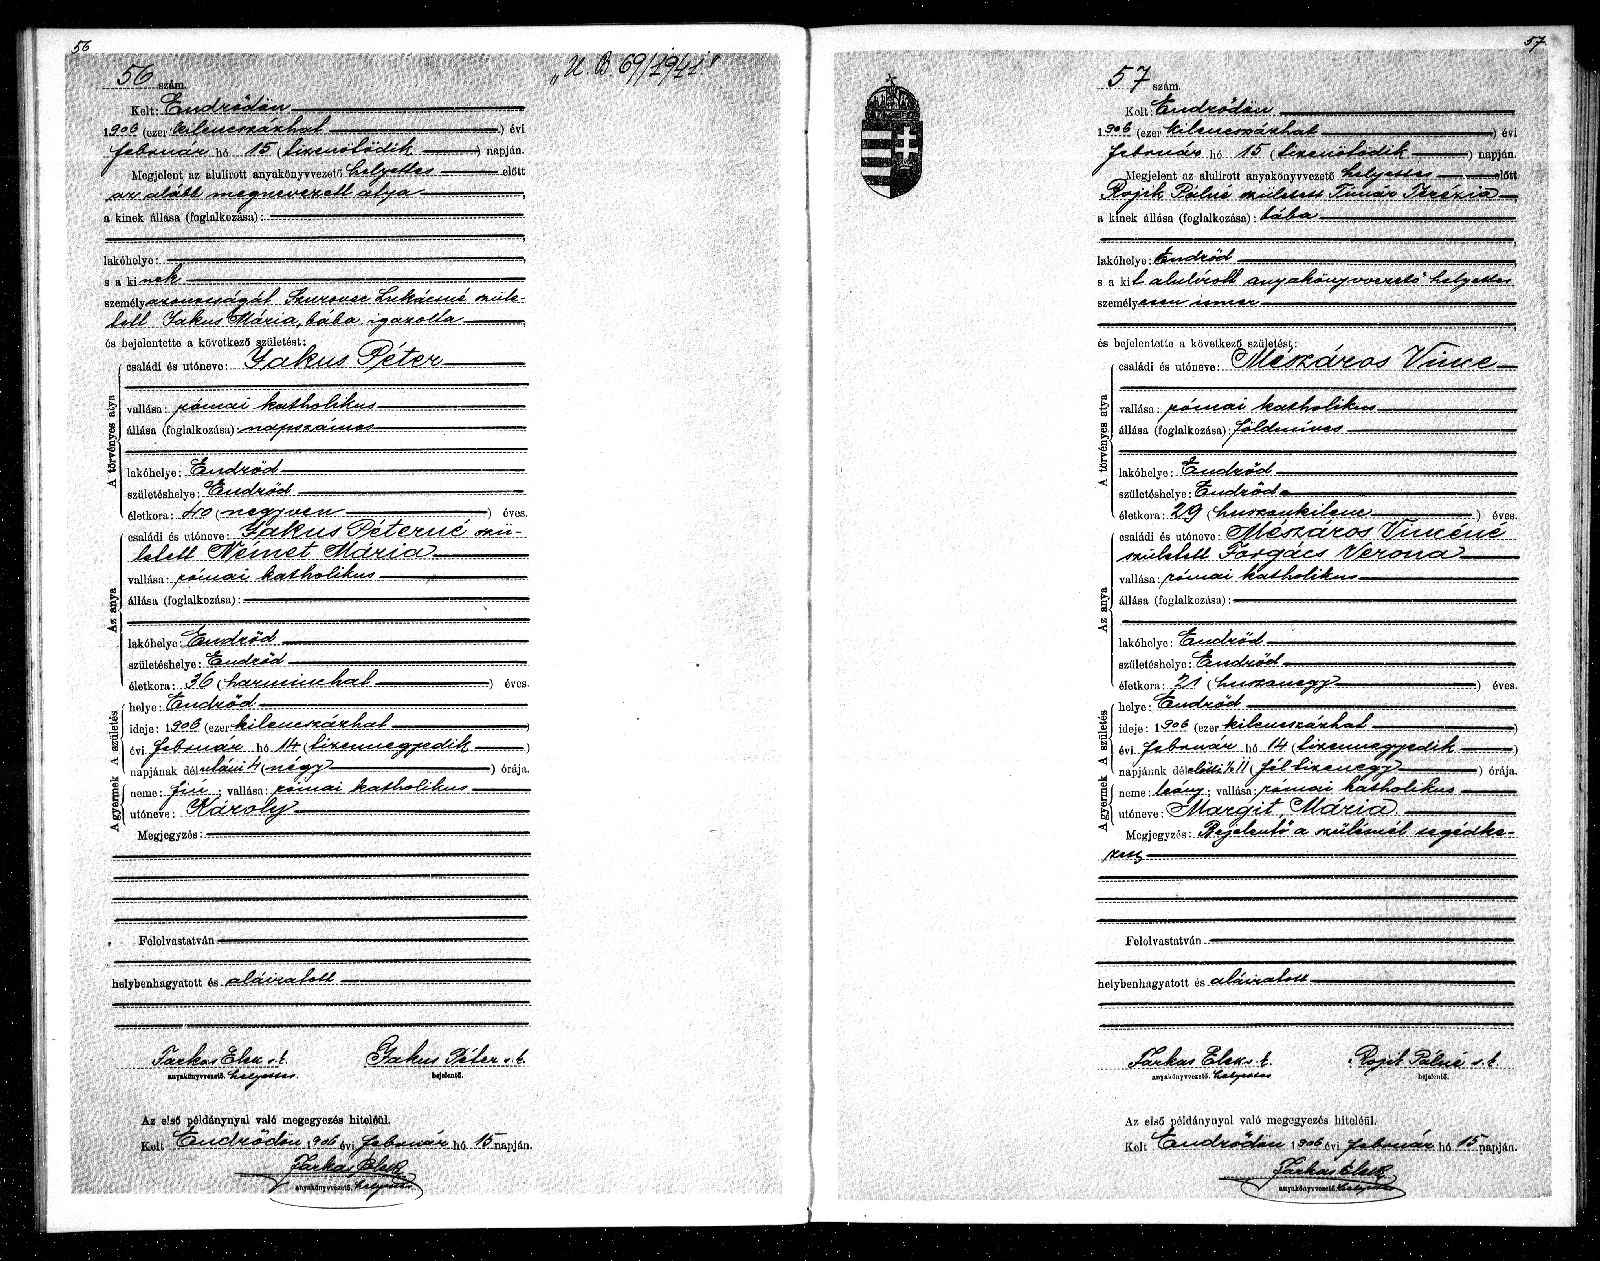 56
56 szám.
"U. B 69/1941"
Kelt: Endrődön
1906 (ezer kilencszázhat) évi
február hó 15 (tizenötödik) napján.
Megjelent az alulirott anyakönyvvezető helyettes előtt
az alább megnevezett atya,
a kinek állása (foglalkozása):
lakóhelye:
s a kinek
személyazonosságát Szurovec Lukácsné szüle-
tett Jakus Mária, bába igazolta
és bejelentette a következő születést:
A törvényes atya
családi és utóneve: Jakus Péter
vallása: római katholikus
állása (foglalkozása): napszámos
lakóhelye: Endrőd
születéshelye: Endrőd
életkora: 40 (negyven) éves.
Az anya
családi és utóneve: Jakus Péterné szü-
letett Német Mária
vallása: római katholikus
állása (foglalkozása):
lakóhelye: Endrőd
születéshelye: Endrőd
életkora: 36 (harminchat) éves.
A születés
helye: Endrőd
ideje: 1906 (ezer kilencszázhat)
évi február hó 14 (tizennegyedik)
napjának délutáni 4 (négy) órája.
A gyermek
neme: fiú; vallása: római katholikus
utóneve: Károly
Megjegyzés:
Felolvastatván
helybenhagyatott és aláiratott
Farkas Elek s. k. Jakus Péter s. k.
anyakönyvvezető helyettes bejelentő.
Az első példánynyal való megegyezés hiteléül.
Kelt Endrődön 1906 évi február hó 15 napján.
Farkas Elek
anyakönyvvezető. helyettes
57
57 szám.
Kelt: Endrődön
1906 (ezer kilencszázhat) évi
február hó 15 (tizenötödik) napján.
Megjelent az alulirott anyakönyvvezető helyettes előtt
Rojik Pálné született Timár Terézia,
a kinek állása (foglalkozása): bába
lakóhelye: Endrőd
s a kit alulirott anyakönyvvezető helyettes
személyesen ismer
és bejelentette a következő születést:
A törvényes atya
családi és utóneve: Mészáros Vince
vallása: római katholikus
állása (foglalkozása): földmíves
lakóhelye: Endrőd
születéshelye: Endrőd
életkora: 29 (huszonkilenc) éves.
Az anya
családi és utóneve: Mészáros Vincéné
született Forgács Verona
vallása: római katholikus
állása (foglalkozása):
lakóhelye: Endrőd
születéshelye: Endrőd
életkora: 21 (huszonegy) éves.
A születés
helye: Endrőd
ideje: 1906 (ezer kilencszázhat)
évi február hó 14 (tizennegyedik)
napjának délelőtti ½ 11 (fél tizenegy) órája.
A gyermek
neme: leány; vallása: római katholikus
utóneve: Margit, Mária
Megjegyzés: Bejelentő a szülésnél segédke-
zett
Felolvastatván
helybenhagyatott és aláiratott
Farkas Elek s. k. Rojik Pálné s. k.
anyakönyvvezető. helyettes bejelentő.
Az első példánynyal való megegyezés hiteléül.
Kelt Endrődön 1906 évi február hó 15 napján.
Farkas Elek
anyakönyvvezető. helyettes